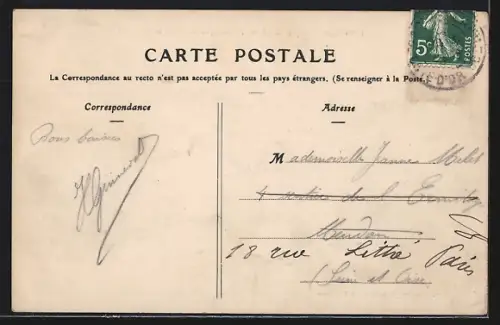 5c
POSTES
CÔTE-D'OR
CARTE POSTALE
La Correspondance au recto n'est pas acceptée par tous les pays étrangers. (Se renseigner à la Poste.)
Correspondance
Adresse
Bons baisers
Mademoiselle Jeanne
4 sentier de l'Ermitage
Meudon
18 rue Littré Paris
(Seine et Oise)